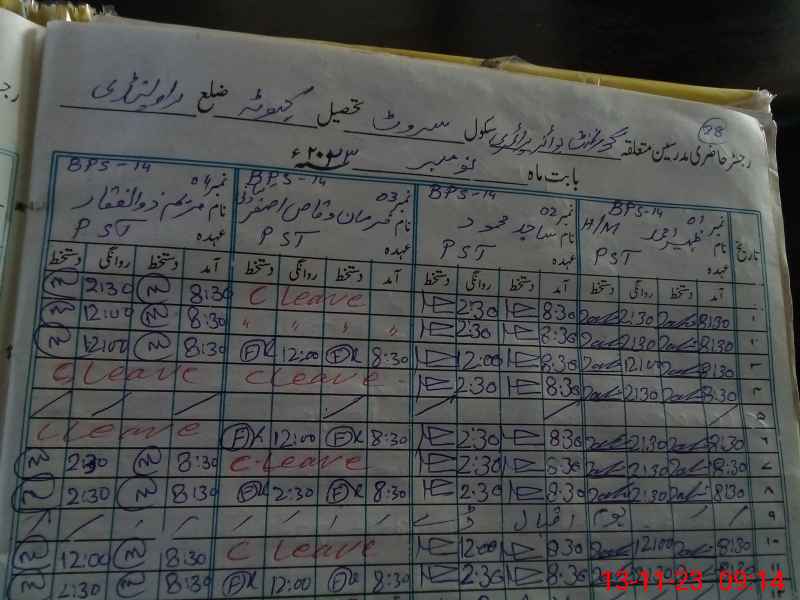 28
رجسٹر حاضری مدرسین متعلقہ گورنمنٹ بوائز پرائمری سکول سروٹ تحصیل کہوٹہ ضلع راولپنڈی
بابت ماہ نومبر ۲۰۲۳ء
BPS-14 BPS-14 BPS-14 BPS-14
نمبر 01 نمبر 02 نمبر 03 نمبر 04
تاریخ نام ظہیر احمد H/M نام ساجد محمود نام وقاص اصغر نام ذوالفقار
عہدہ PST عہدہ PST عہدہ PST عہدہ PST
آمد دستخط روانگی دستخط آمد دستخط روانگی دستخط آمد دستخط روانگی دستخط آمد دستخط روانگی دستخط
۱ 8:30 2:30 8:30 2:30 C Leave 8:30 2:30
۲ 8:30 2:30 8:30 2:30 " " " " 8:30 12:00
۳ 8:30 12:00 8:30 12:00 8:30 12:00 8:30 12:00
۴ 8:30 2:30 8:30 2:30 C Leave C Leave
۵
۶ 8:30 2:30 8:30 2:30 8:30 12:00 C Leave
۷ 8:30 2:30 8:30 2:30 C-Leave 8:30 2:30
۸ 8:30 2:30 8:30 2:30 8:30 2:30 8:30 2:30
۹ یوم اقبال ڈے
۱۰ 8:30 12:00 8:30 12:00 C Leave 8:30 12:00
۱۱ 8:30 2:30 8:30 12:00 8:30 2:30
13-11-23 09:14